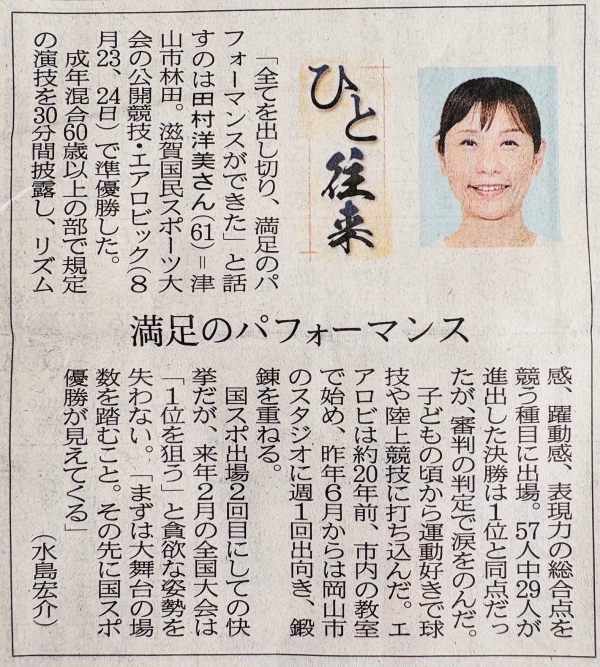 ひと往来
満足のパフォーマンス
「全てを出し切り、満足のパ
フォーマンスができた」と話
すのは田村洋美さん(61)＝津
山市林田。滋賀国民スポーツ大
会の公開競技・エアロビック(8
月23、24日)で準優勝した。
成年混合60歳以上の部で規定
の演技を30分間披露し、リズム
感、躍動感、表現力の総合点を
競う種目に出場。57人中29人が
進出した決勝は1位と同点だっ
たが、審判の判定で涙をのんだ。
子どもの頃から運動好きで球
技や陸上競技に打ち込んだ。エ
アロビは約20年前、市内の教室
で始め、昨年6月からは岡山市
のスタジオに週1回出向き、鍛
錬を重ねる。
国スポ出場2回目にしての快
挙だが、来年2月の全国大会は
「1位を狙う」と貪欲な姿勢を
失わない。「まずは大舞台の場
数を踏むこと。その先に国スポ
優勝が見えてくる」
(水島宏介)